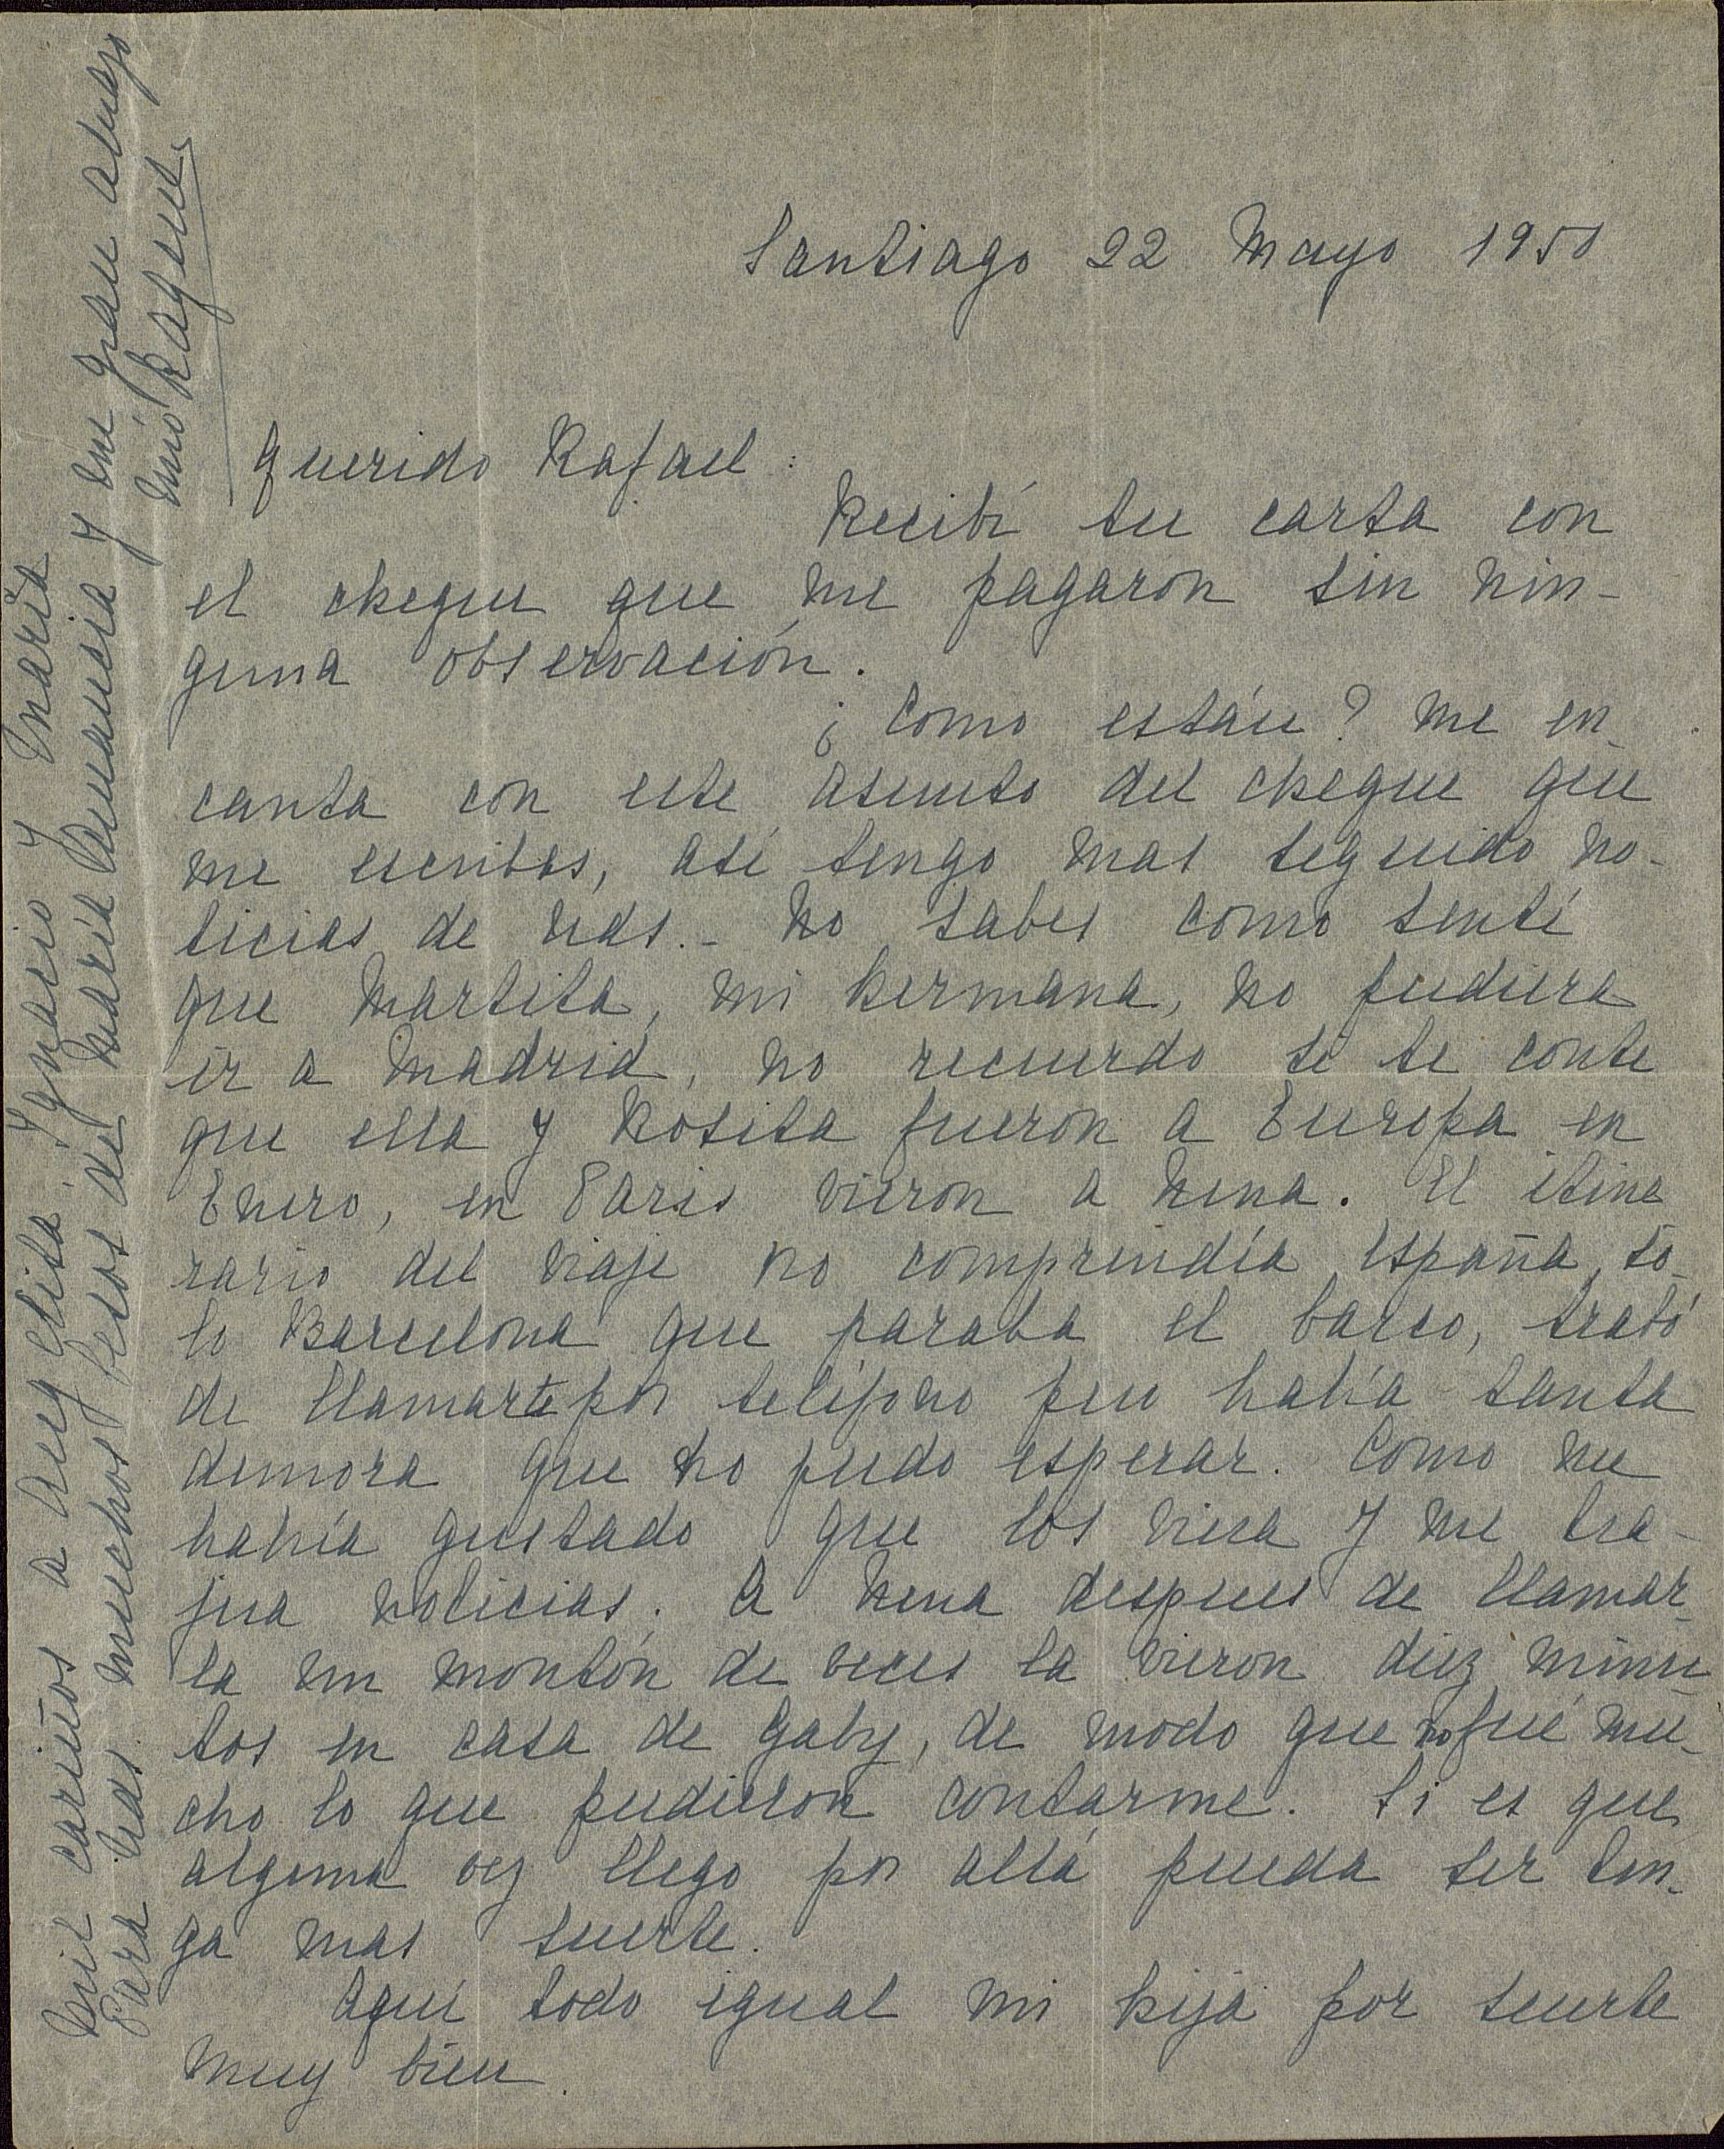 Santiago 22 Mayo 1951
Querido Rafael:
Recibí tu carta con
el cheque que me pagaron sin nin-
guna observación.
¿Como están? Me en-
canta con este asunto del cheque que
me escribas, así tengo mas seguido no-
ticias de uds.- No sabes como sentí
que Martita, mi hermana, no pudiera
ir a Madrid, no recuerdo si te conte
que ella y Rosita fueron a Europa en
Enero, en Paris vieron a Nena. El itine
rario del viaje no comprendía España, só-
lo Barcelona que paraba el barco, trató
de llamarte por teléfono pero había tanta
demora que no pudo esperar. Como me
habría gustado que los viera y me tra-
jera noticias. A Nena despues de llamar-
la un montón de veces la vieron diez minu-
tos en casa de Gaby, de modo que no fué mu-
cho lo que pudieron contarme. Si es que
alguna vez llego por allá pueda ser ten-
ga mas suerte.
Aquí todo igual mi hija por suerte
muy bien.
Mil cariños a Luz Elisa, Ygnacio y María
Para Uds muchos besos de María y un gran abrazo
mio Raquel